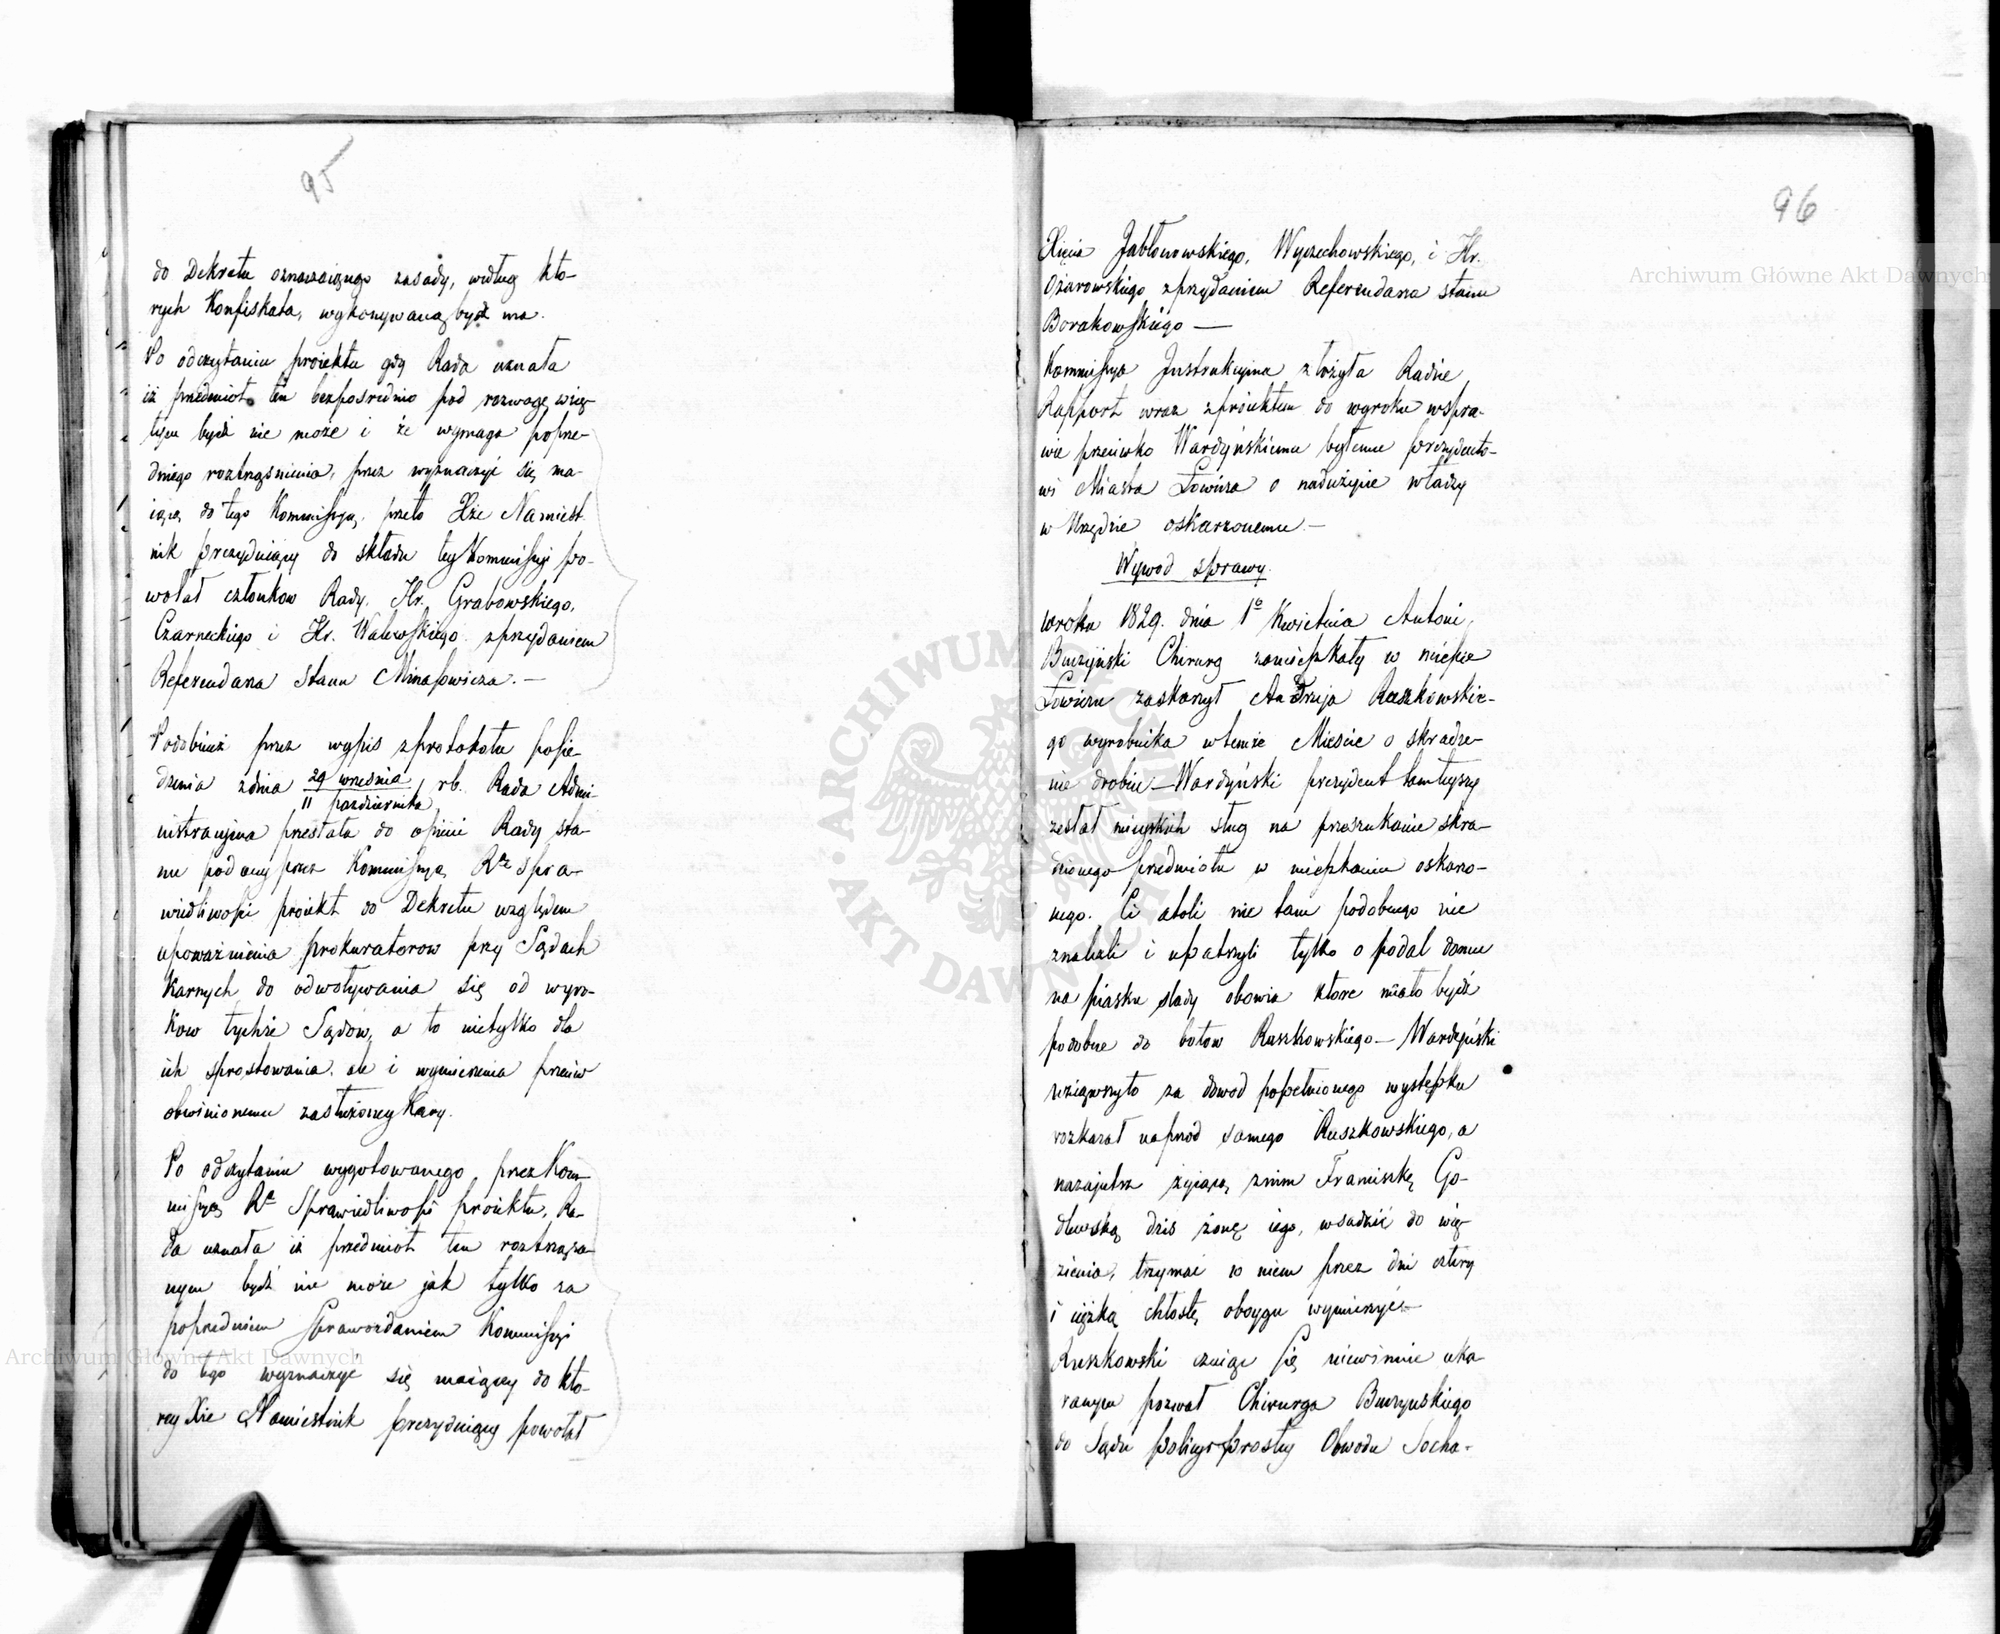 95
do Dekretu oznaczaiącego zasady, według kto-
rych Konfiskata, wykonywaną bydź ma.
Po odczytaniu proiektu gdy Rada uznała
iż przedmiot ten bezpośrednio pod rozwagę wzię-
tym bydź nie może i że wymaga poprze-
dniego roztrząśnienia, przez wyznaczyć się ma-
iącą do tego Kommissyą, przeto Xże Namiest
nik prezyduiący do składu tey Kommissyi po-
wołał członkow Rady, Hr. Grabowskiego,
Czarneckiego i Hr. Walewskiego z przydaniem
Referendarza Stanu Minasowicza. —
Podobnież przez wypis z protokołu posie-
dzenia z dnia 29 września / 11 października rb. Rada Admi-
nistracyina przesłała do opinii Rady sta-
nu podany przez Kommissyą Rz. Spra-
wiedliwości proiekt do Dekretu względem
upoważnienia prokuratorow przy Sądach
Karnych do odwoływania się od wyro-
kow tychże Sądów, a to nietylko dla
ich sprostowania, ale i wymierzenia przeciw
obwinionemu zasłużoney Kary.
Po odczytaniu wygotowanego przez Kom-
missyą Rz. Sprawiedliwości proiektu, Ra-
da uznała iż przedmiot ten roztrząsa-
nym bydź nie może jak tylko za
poprzedniem Sprawozdaniem Kommissyi
do tego wyznaczyć się maiącey do kto-
rey Xże Namiestnik prezyduiący powołał
96
Xięcia Jabłonowskiego, Wyczechowskiego, i Hr.
Ożarowskiego z przydaniem Referendarza stanu
Borakowskiego —
Kommissya Instrukcyina złożyła Radzie
Rapport wraz z proiektem do wyroku w spra-
wie przeciwko Wardyńskiemu byłemu prezydento-
wi Miasta Łowicza o nadużycie władzy
w Urzędzie oskarżonemu. —
Wywod sprawy.
w roku 1829. dnia 1o Kwietnia Antoni
Buczyński Chirurg zamieszkały w mieście
Łowiczu zaskarżył Andrzeja Ruszkowskie-
go wyrobnika w temże Mieście o skradze-
nie drobiu — Wardyński prezydent tamteyszy
zesłał mieyskich sług na przeszukanie skra-
dzionego przedmiotu w mieszkaniu oskarżo-
nego. Ci atoli nic tam podobnego nie
znaleźli i upatrzyli tylko o podal domu
na piasku ślady obowia ktore miało bydź
podobne do botow Ruszkowskiego — Wardyński
wziąwszy to za dowod popełnionego występku
rozkazał naprzod samego Ruszkowskiego, a
nazajutrz żyiącą z nim Franciszkę Go-
dlewską dziś żonę iego, wsadzić do wię-
zienia, trzymać w niem przez dni cztery
i ciężką chłostę oboygu wymierzyć —
Ruszkowski czuiąc się niewinnie uka-
ranym pozwał Chirurga Buczynskiego
do Sądu policyi prostey Obwodu Socha-
Archiwum Główne Akt Dawnych
Archiwum Główne Akt Dawnych
ARCHIWUM GŁÓWNE AKT DAWNYCH